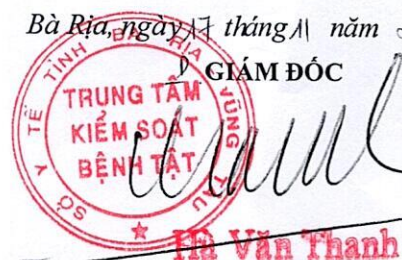 Bà Rịa, ngày 17 tháng 11 năm
GIÁM ĐỐC
SỞ Y TẾ TỈNH BÀ RỊA VŨNG TÀU
TRUNG TÂM
KIỂM SOÁT
BỆNH TẬT
Hà Văn Thanh